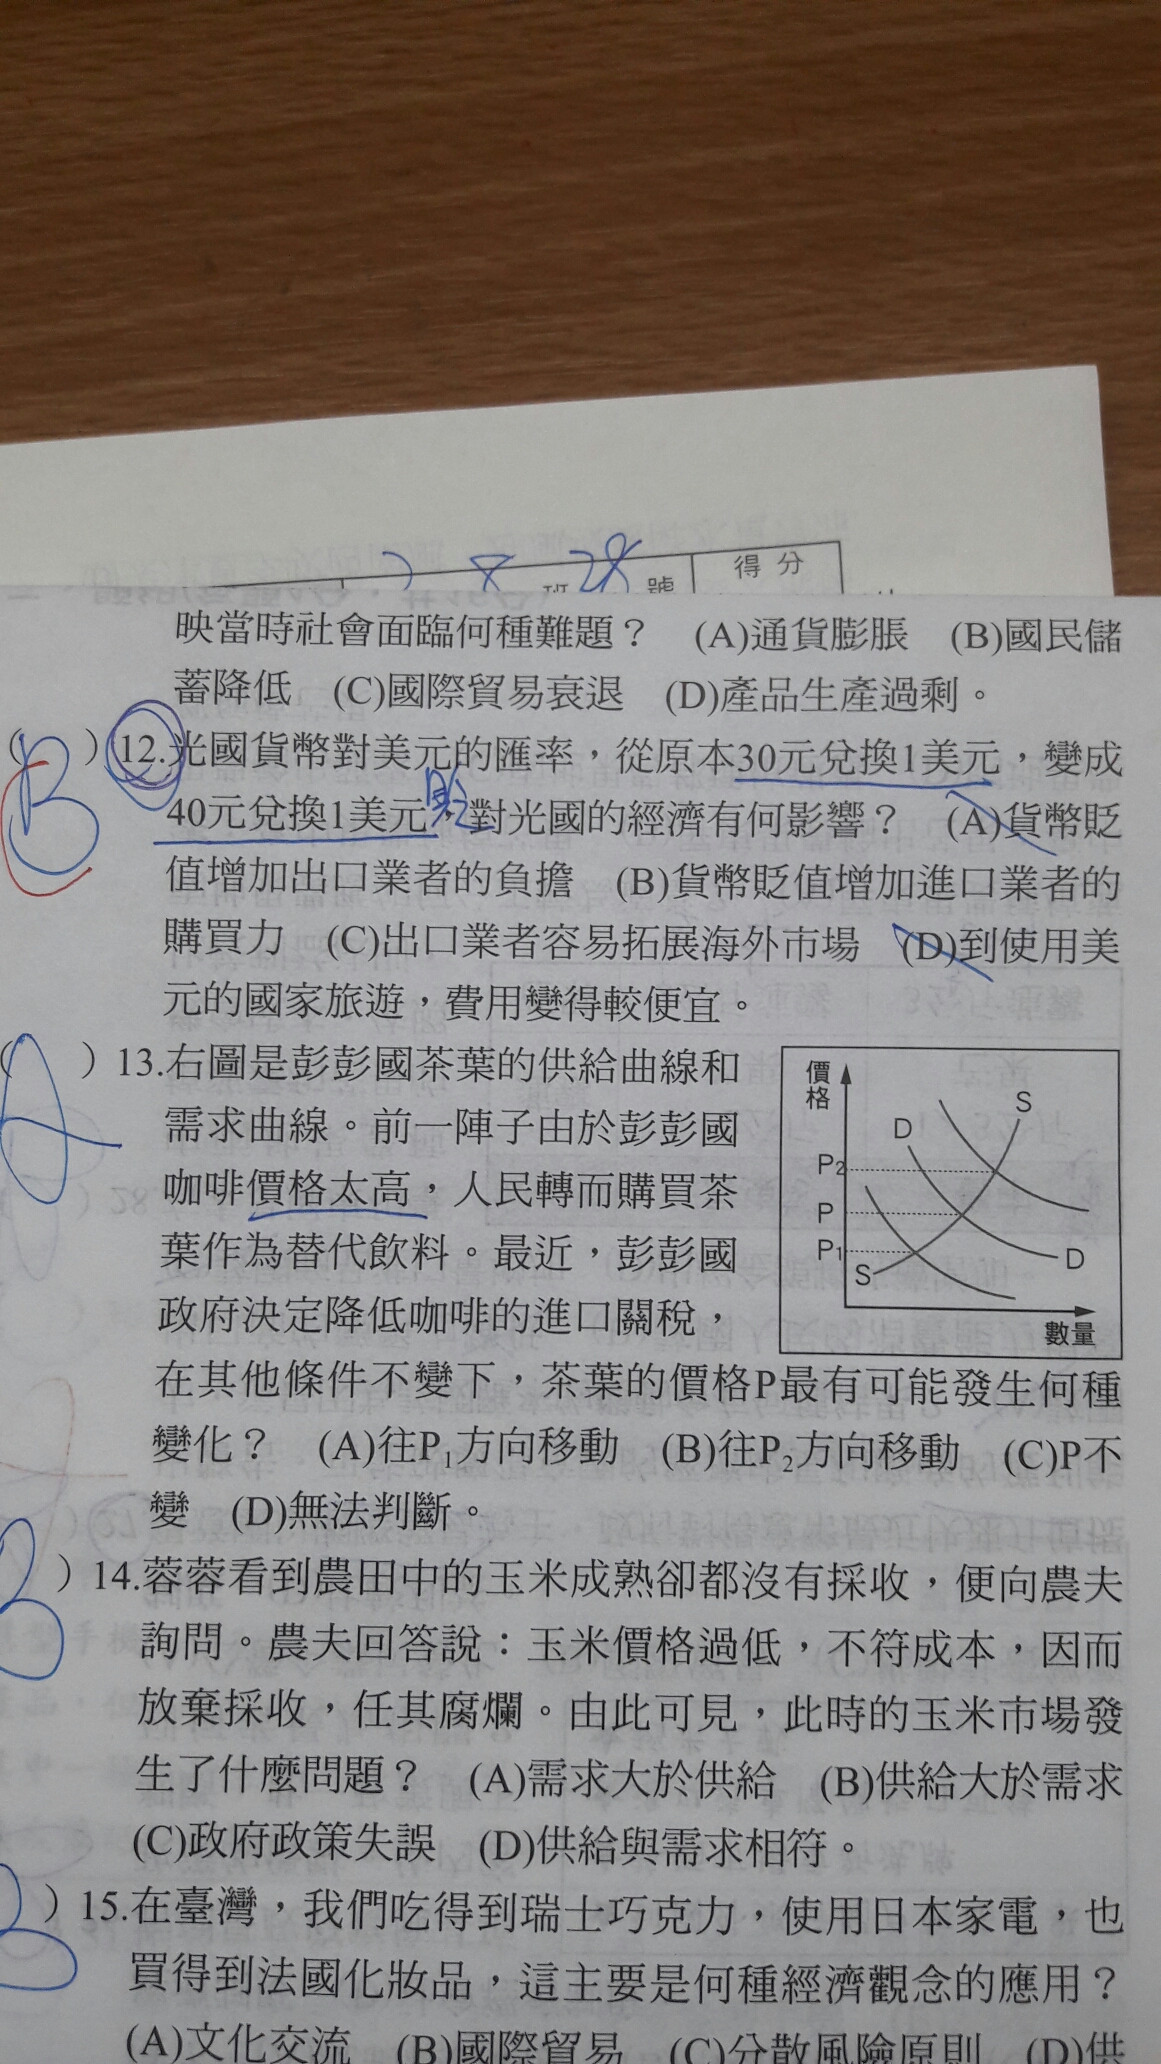 28 號 得分
映當時社會面臨何種難題？ (A)通貨膨脹 (B)國民儲
蓄降低 (C)國際貿易衰退 (D)產品生產過剩。
B ( )12.光國貨幣對美元的匯率，從原本30元兌換1美元，變成
40元兌換1美元，對光國的經濟有何影響？ (A)貨幣貶
值增加出口業者的負擔 (B)貨幣貶值增加進口業者的
購買力 (C)出口業者容易拓展海外市場 (D)到使用美
元的國家旅遊，費用變得較便宜。
A ( )13.右圖是彭彭國茶葉的供給曲線和
需求曲線。前一陣子由於彭彭國
咖啡價格太高，人民轉而購買茶
葉作為替代飲料。最近，彭彭國
政府決定降低咖啡的進口關稅，
價格
S
D
P2
P
P1
S
D
數量
在其他條件不變下，茶葉的價格P最有可能發生何種
變化？ (A)往P1方向移動 (B)往P2方向移動 (C)P不
變 (D)無法判斷。
B )14.蓉蓉看到農田中的玉米成熟卻都沒有採收，便向農夫
詢問。農夫回答說：玉米價格過低，不符成本，因而
放棄採收，任其腐爛。由此可見，此時的玉米市場發
生了什麼問題？ (A)需求大於供給 (B)供給大於需求
(C)政府政策失誤 (D)供給與需求相符。
B )15.在臺灣，我們吃得到瑞士巧克力，使用日本家電，也
買得到法國化妝品，這主要是何種經濟觀念的應用？
(A)文化交流 (B)國際貿易 (C)分散風險原則 (D)供